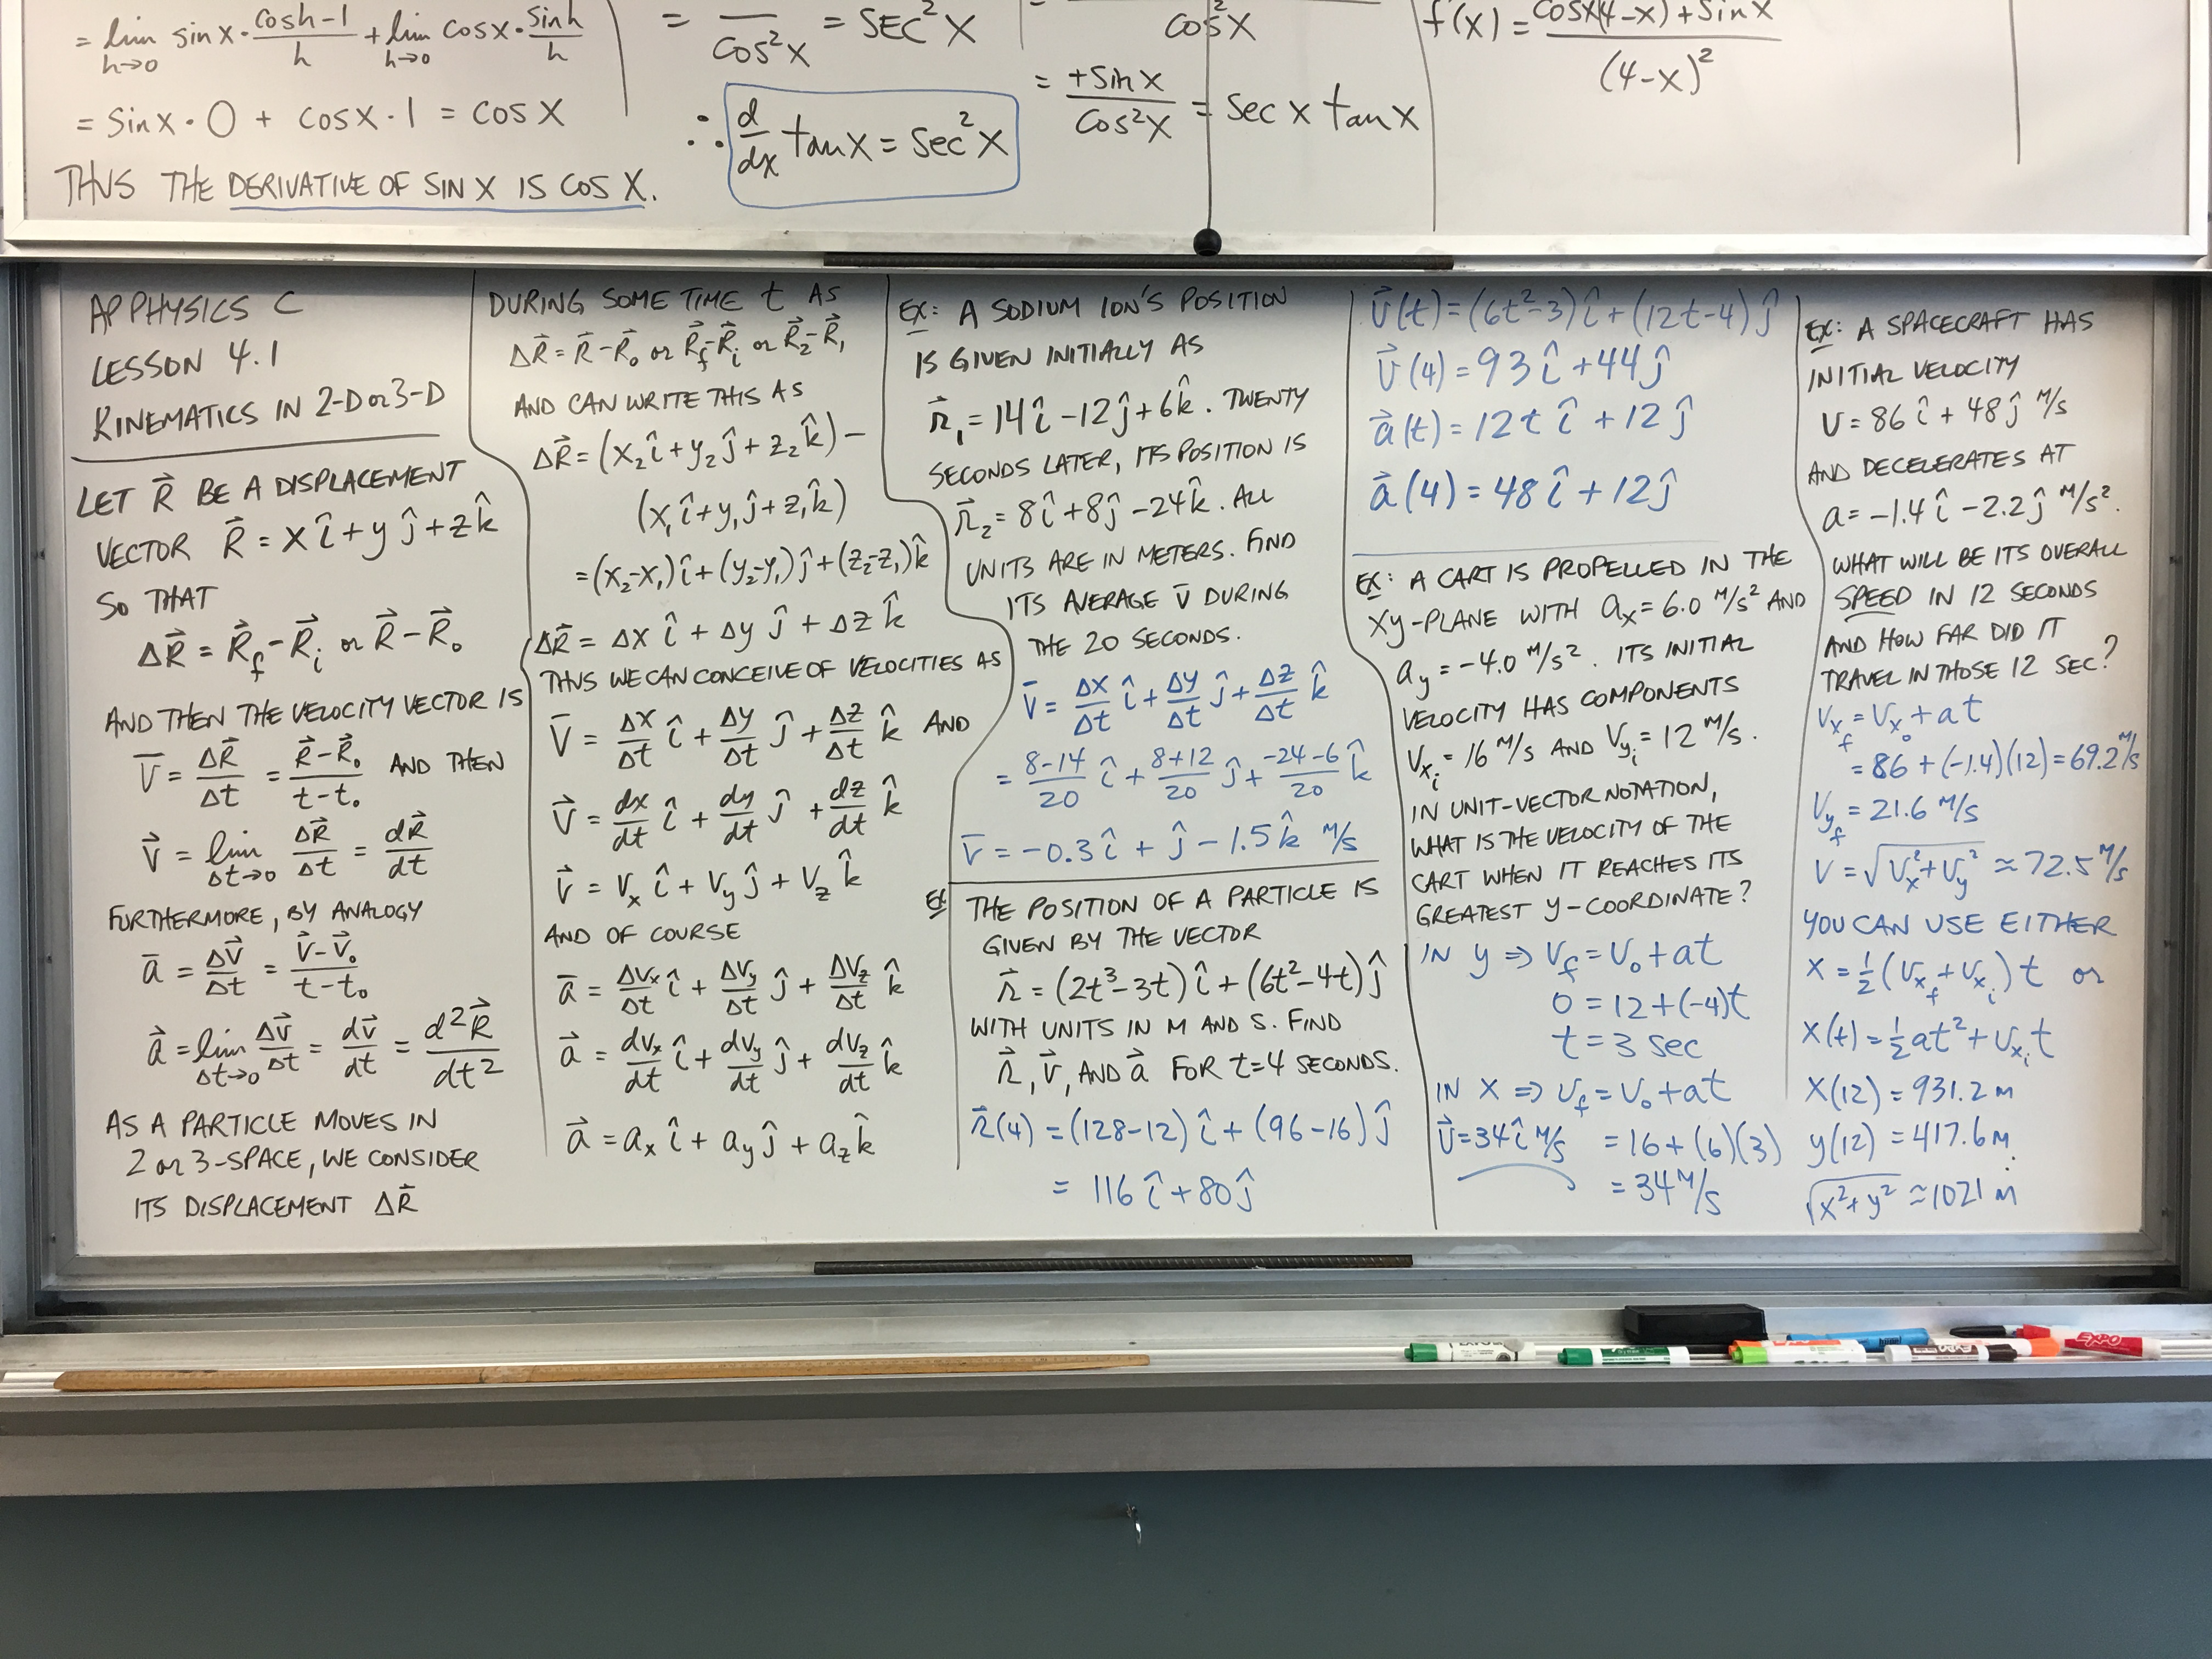 = lim h→0 sin x · (cosh - 1)/h + lim h→0 cos x · sinh/h
= sin x · 0 + cos x · 1 = cos x
THUS THE DERIVATIVE OF SIN X IS COS X.
= /cos²x = SEC²X
∴ d/dx tan x = sec²x
cos²x
= +sin x/cos²x = sec x tan x
f'(x) = cosx(4-x)+sin x/(4-x)²
AP PHYSICS C
LESSON 4.1
KINEMATICS IN 2-D or 3-D
LET R⃗ BE A DISPLACEMENT
VECTOR R⃗ = x î + y ĵ + z k̂
SO THAT
ΔR⃗ = R⃗f - R⃗i or R⃗ - R⃗₀
AND THEN THE VELOCITY VECTOR IS
V̄ = ΔR⃗/Δt = (R⃗ - R⃗₀)/(t - t₀) AND THEN
v⃗ = lim Δt→0 ΔR⃗/Δt = dR⃗/dt
FURTHERMORE, BY ANALOGY
ā = Δv⃗/Δt = (v⃗ - v⃗₀)/(t - t₀)
a⃗ = lim Δt→0 Δv⃗/Δt = dv⃗/dt = d²R⃗/dt²
AS A PARTICLE MOVES IN
2 or 3-SPACE, WE CONSIDER
ITS DISPLACEMENT ΔR⃗
DURING SOME TIME t AS
ΔR⃗ = R⃗ - R⃗₀ or R⃗f - R⃗i or R⃗₂ - R⃗₁
AND CAN WRITE THIS AS
ΔR⃗ = (x₂î + y₂ĵ + z₂k̂) -
(x₁î + y₁ĵ + z₁k̂)
= (x₂-x₁)î + (y₂-y₁)ĵ + (z₂-z₁)k̂
ΔR⃗ = Δx î + Δy ĵ + Δz k̂
THUS WE CAN CONCEIVE OF VELOCITIES AS
V̄ = Δx/Δt î + Δy/Δt ĵ + Δz/Δt k̂ AND
v⃗ = dx/dt î + dy/dt ĵ + dz/dt k̂
v⃗ = Vx î + Vy ĵ + Vz k̂
AND OF COURSE
ā = ΔVx/Δt î + ΔVy/Δt ĵ + ΔVz/Δt k̂
a⃗ = dVx/dt î + dVy/dt ĵ + dVz/dt k̂
a⃗ = ax î + ay ĵ + az k̂
EX: A SODIUM ION'S POSITION
IS GIVEN INITIALLY AS
r⃗₁ = 14î - 12ĵ + 6k̂. TWENTY
SECONDS LATER, ITS POSITION IS
r⃗₂ = 8î + 8ĵ - 24k̂. ALL
UNITS ARE IN METERS. FIND
ITS AVERAGE V̄ DURING
THE 20 SECONDS.
V̄ = Δx/Δt î + Δy/Δt ĵ + Δz/Δt k̂
= (8-14)/20 î + (8+12)/20 ĵ + (-24-6)/20 k̂
V̄ = -0.3î + ĵ - 1.5k̂ M/s
EX THE POSITION OF A PARTICLE IS
GIVEN BY THE VECTOR
r⃗ = (2t³-3t)î + (6t²-4t)ĵ
WITH UNITS IN M AND S. FIND
r⃗, v⃗, AND a⃗ FOR t=4 SECONDS.
r⃗(4) = (128-12)î + (96-16)ĵ
= 116î + 80ĵ
v⃗(t) = (6t²-3)î + (12t-4)ĵ
v⃗(4) = 93î + 44ĵ
a⃗(t) = 12t î + 12ĵ
a⃗(4) = 48î + 12ĵ
EX: A CART IS PROPELLED IN THE
XY-PLANE WITH ax = 6.0 M/s² AND
ay = -4.0 M/s². ITS INITIAL
VELOCITY HAS COMPONENTS
Vxi = 16 M/s AND Vyi = 12 M/s.
IN UNIT-VECTOR NOTATION,
WHAT IS THE VELOCITY OF THE
CART WHEN IT REACHES ITS
GREATEST Y-COORDINATE?
IN y ⇒ Vf = V₀ + at
0 = 12 + (-4)t
t = 3 sec
IN X ⇒ Vf = V₀ + at
v⃗ = 34î M/s = 16 + (6)(3)
= 34 M/s
EX: A SPACECRAFT HAS
INITIAL VELOCITY
v = 86î + 48ĵ M/s
AND DECELERATES AT
a = -1.4î - 2.2ĵ M/s².
WHAT WILL BE ITS OVERALL
SPEED IN 12 SECONDS
AND HOW FAR DID IT
TRAVEL IN THOSE 12 SEC?
Vxf = Vx₀ + at
= 86 + (-1.4)(12) = 69.2 M/s
Vyf = 21.6 M/s
V = √(Vx² + Vy²) ≈ 72.5 M/s
YOU CAN USE EITHER
X = ½(Vxf + Vxi)t or
X(t) = ½at² + Vxi t
X(12) = 931.2 m
y(12) = 417.6 m ∴
√(x²+y²) ≈ 1021 m
EXPO